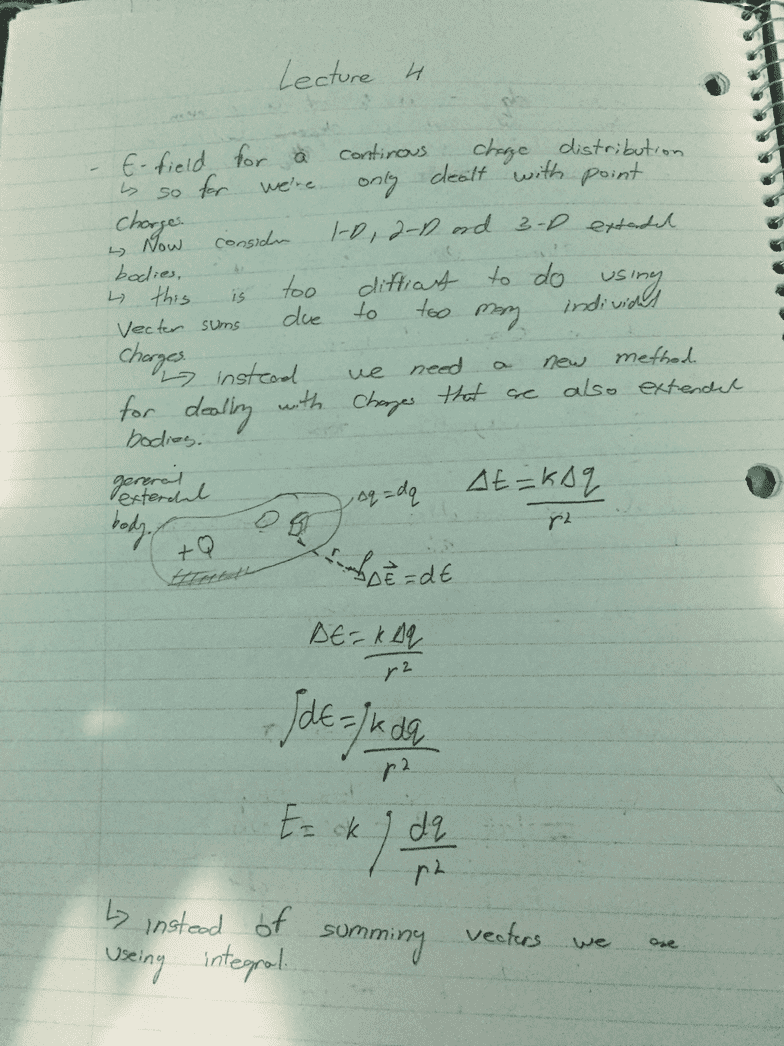 Lecture 4
- E-field for a continous charge distribution
↳ so far we're only dealt with point
charges.
↳ Now consider 1-D, 2-D and 3-D extended
bodies.
↳ this is too difficult to do using
Vector sums due to too many individual
charges.
↳ instead we need a new method
for dealing with charges that are also extended
bodies.
general
extended
body.
Δq = dq
ΔE = kΔq / r²
+Q
r
ΔE⃗ = dE
ΔE = kΔq / r²
∫dE = ∫k dq / r²
E = k ∫ dq / r²
↳ instead of summing vectors we are
useing integral.